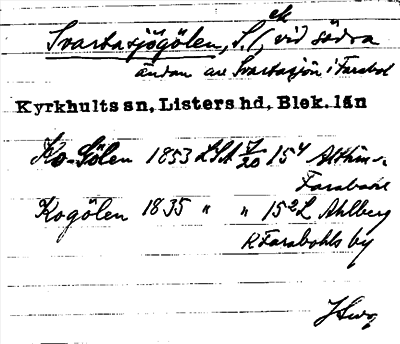 ek
Svartasjögölen, S. l., vid södra
ändan av Svartasjön i Farabol
Kyrkhults sn, Listers hd, Blek. län
Ko-Gölen 1853 LSA 7/20 15⁴
Farabohl
Kogölen 1835 " " 15² L Ahlberg
R Farabohls by